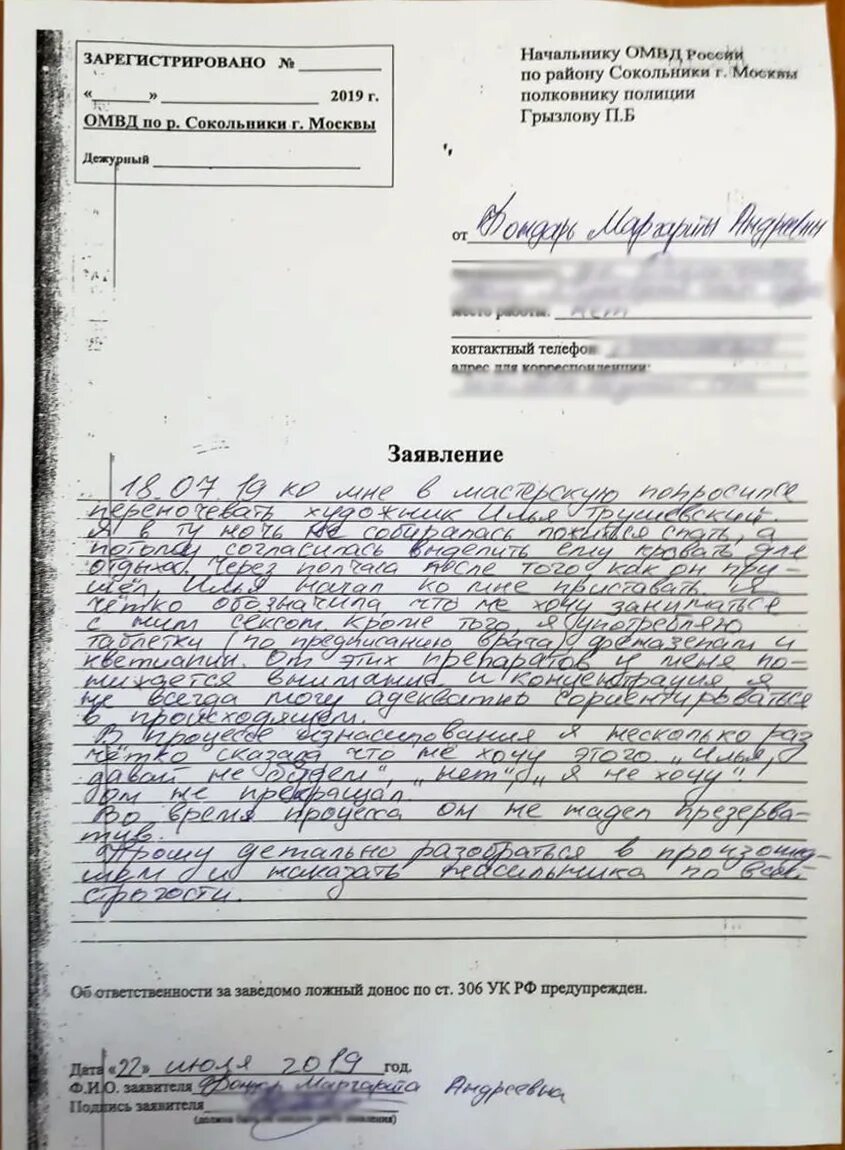 ЗАРЕГИСТРИРОВАНО №
« » 2019 г.
ОМВД по р. Сокольники г. Москвы
Дежурный
Начальнику ОМВД России
по району Сокольники г. Москвы
полковнику полиции
Грызлову П.Б
от Бондарь Маргариты Андреевн
место работы: нет
контактный телефон
адрес для корреспонденции:
Заявление
18.07.19 ко мне в мастерскую попросился
переночевать художник Илья Трушевский.
Я в ту ночь не собиралась ложиться спать, а
потому согласилась выделить ему кровать для
отдыха. Через полчаса после того, как он при-
шёл, Илья начал ко мне приставать. Я
чётко обозначила, что не хочу заниматься
с ним сексом. Кроме того, я употребляю
таблетки (по предписанию врача) феназепам и
кветиапин. От этих препаратов у меня по-
нижается внимание и концентрация я
не всегда могу адекватно сориентироваться
в происходящем.
В процессе изнасилования я несколько раз
чётко сказала что не хочу этого. „Илья,
давай не будем", „нет", „я не хочу"
он не прекращал.
Во время процесса он не надел презерва-
тив.
Прошу детально разобраться в произоше-
шем и наказать насильника по всей
строгости.
Об ответственности за заведомо ложный донос по ст. 306 УК РФ предупрежден.
Дата «22» июля 2019 год.
Ф.И.О. заявителя Маргарита Андреевна
Подпись заявителя